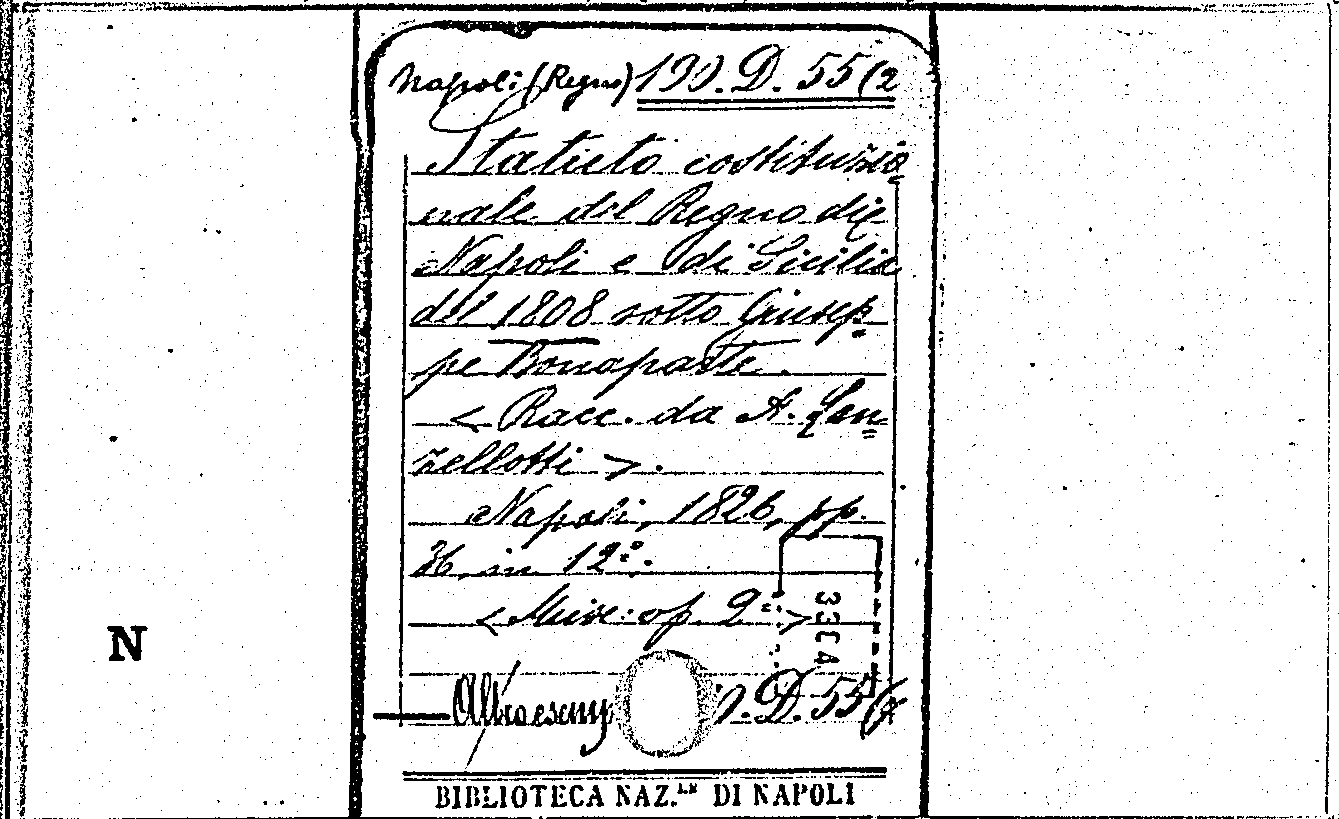 Napoli (Regno) 190. D. 55 (2
Statuto costituzio=
nale del Regno di
Napoli e di Sicilia
del 1808 sotto Giusep=
pe Bonaparte.
< Racc. da A. Lan=
zellotti >.
Napoli, 1826, pp.
36, in 12°.
< Misc: op. 2ª >
3304
Altro esemp 0. D. 55 (
BIBLIOTECA NAZ.LE DI NAPOLI
N